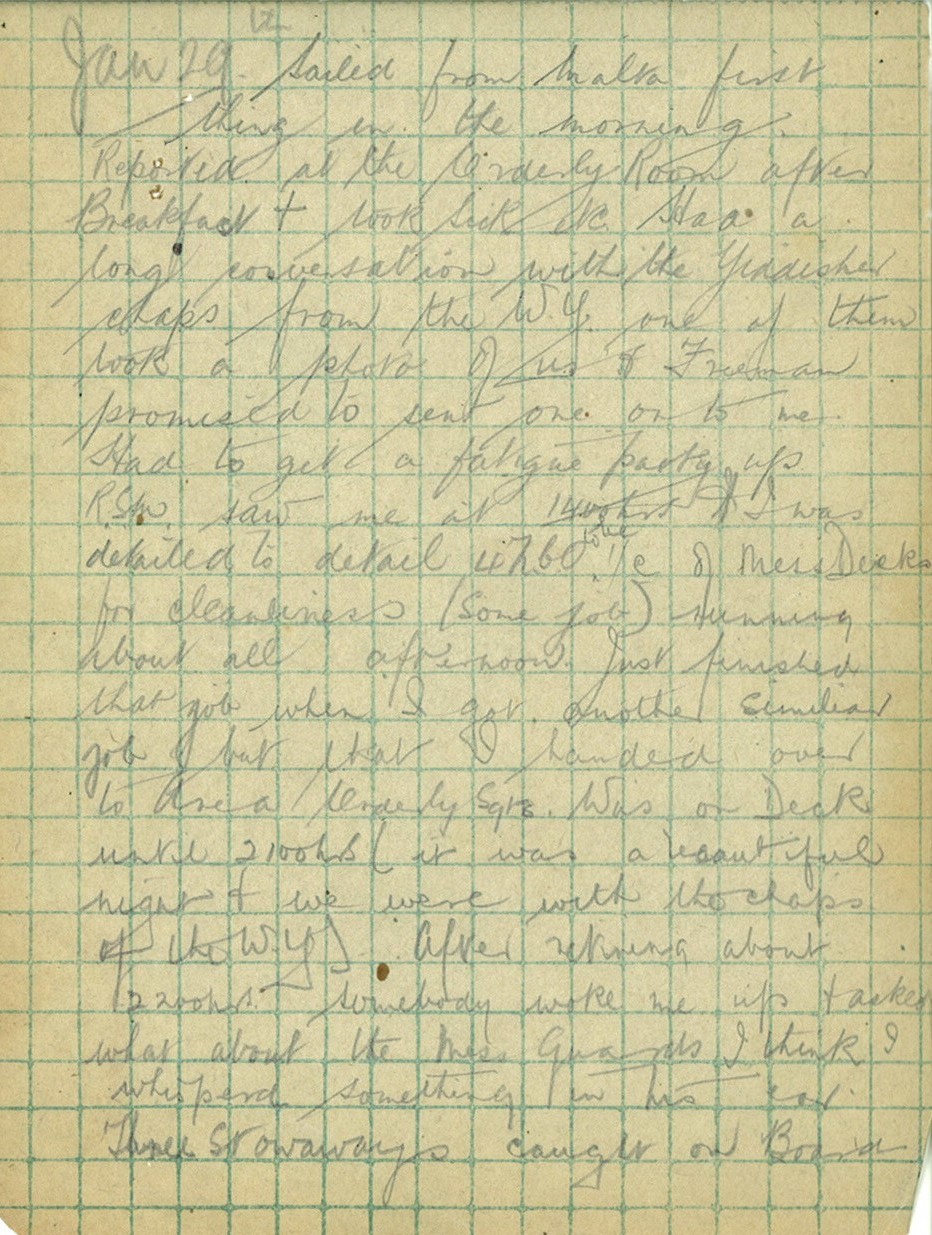 Jan 29th Sailed from Malta first
thing in the morning.
Reported at the Orderly Room after
Breakfast + took sick etc. Had a
long conversation with the Yiddisher
chaps from the W.Y. one of them
took a photo of us & Freeman
promised to sent one on to me.
Had to get a fatigue party up
R.S.M. saw me at 1400hrs & I was
detailed to detail 47 to be i/c of Mess Decks
for cleanliness (Some job) running
about all afternoon. Just finished
that job when I got another similiar
job & but that I handed over
to Area Orderly Sgts. Was on Deck
until 2100hrs (it was a beautiful
night & we were with the chaps
of the W.Y.) After retiring about
2200hrs. somebody woke me up + asked
what about the Mess Guards I think I
whisperd something in his ear.
Three Stowaways caught on Board